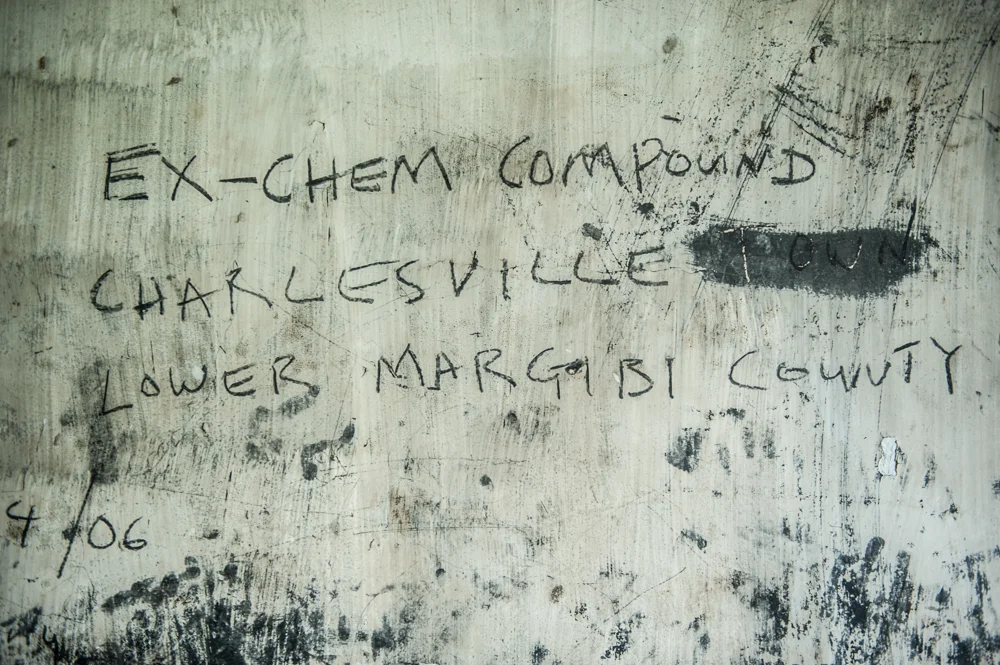 EX-CHEM COMPOUND
CHARLESVILLE TOWN
LOWER MARGIBI COUNTY
4/06